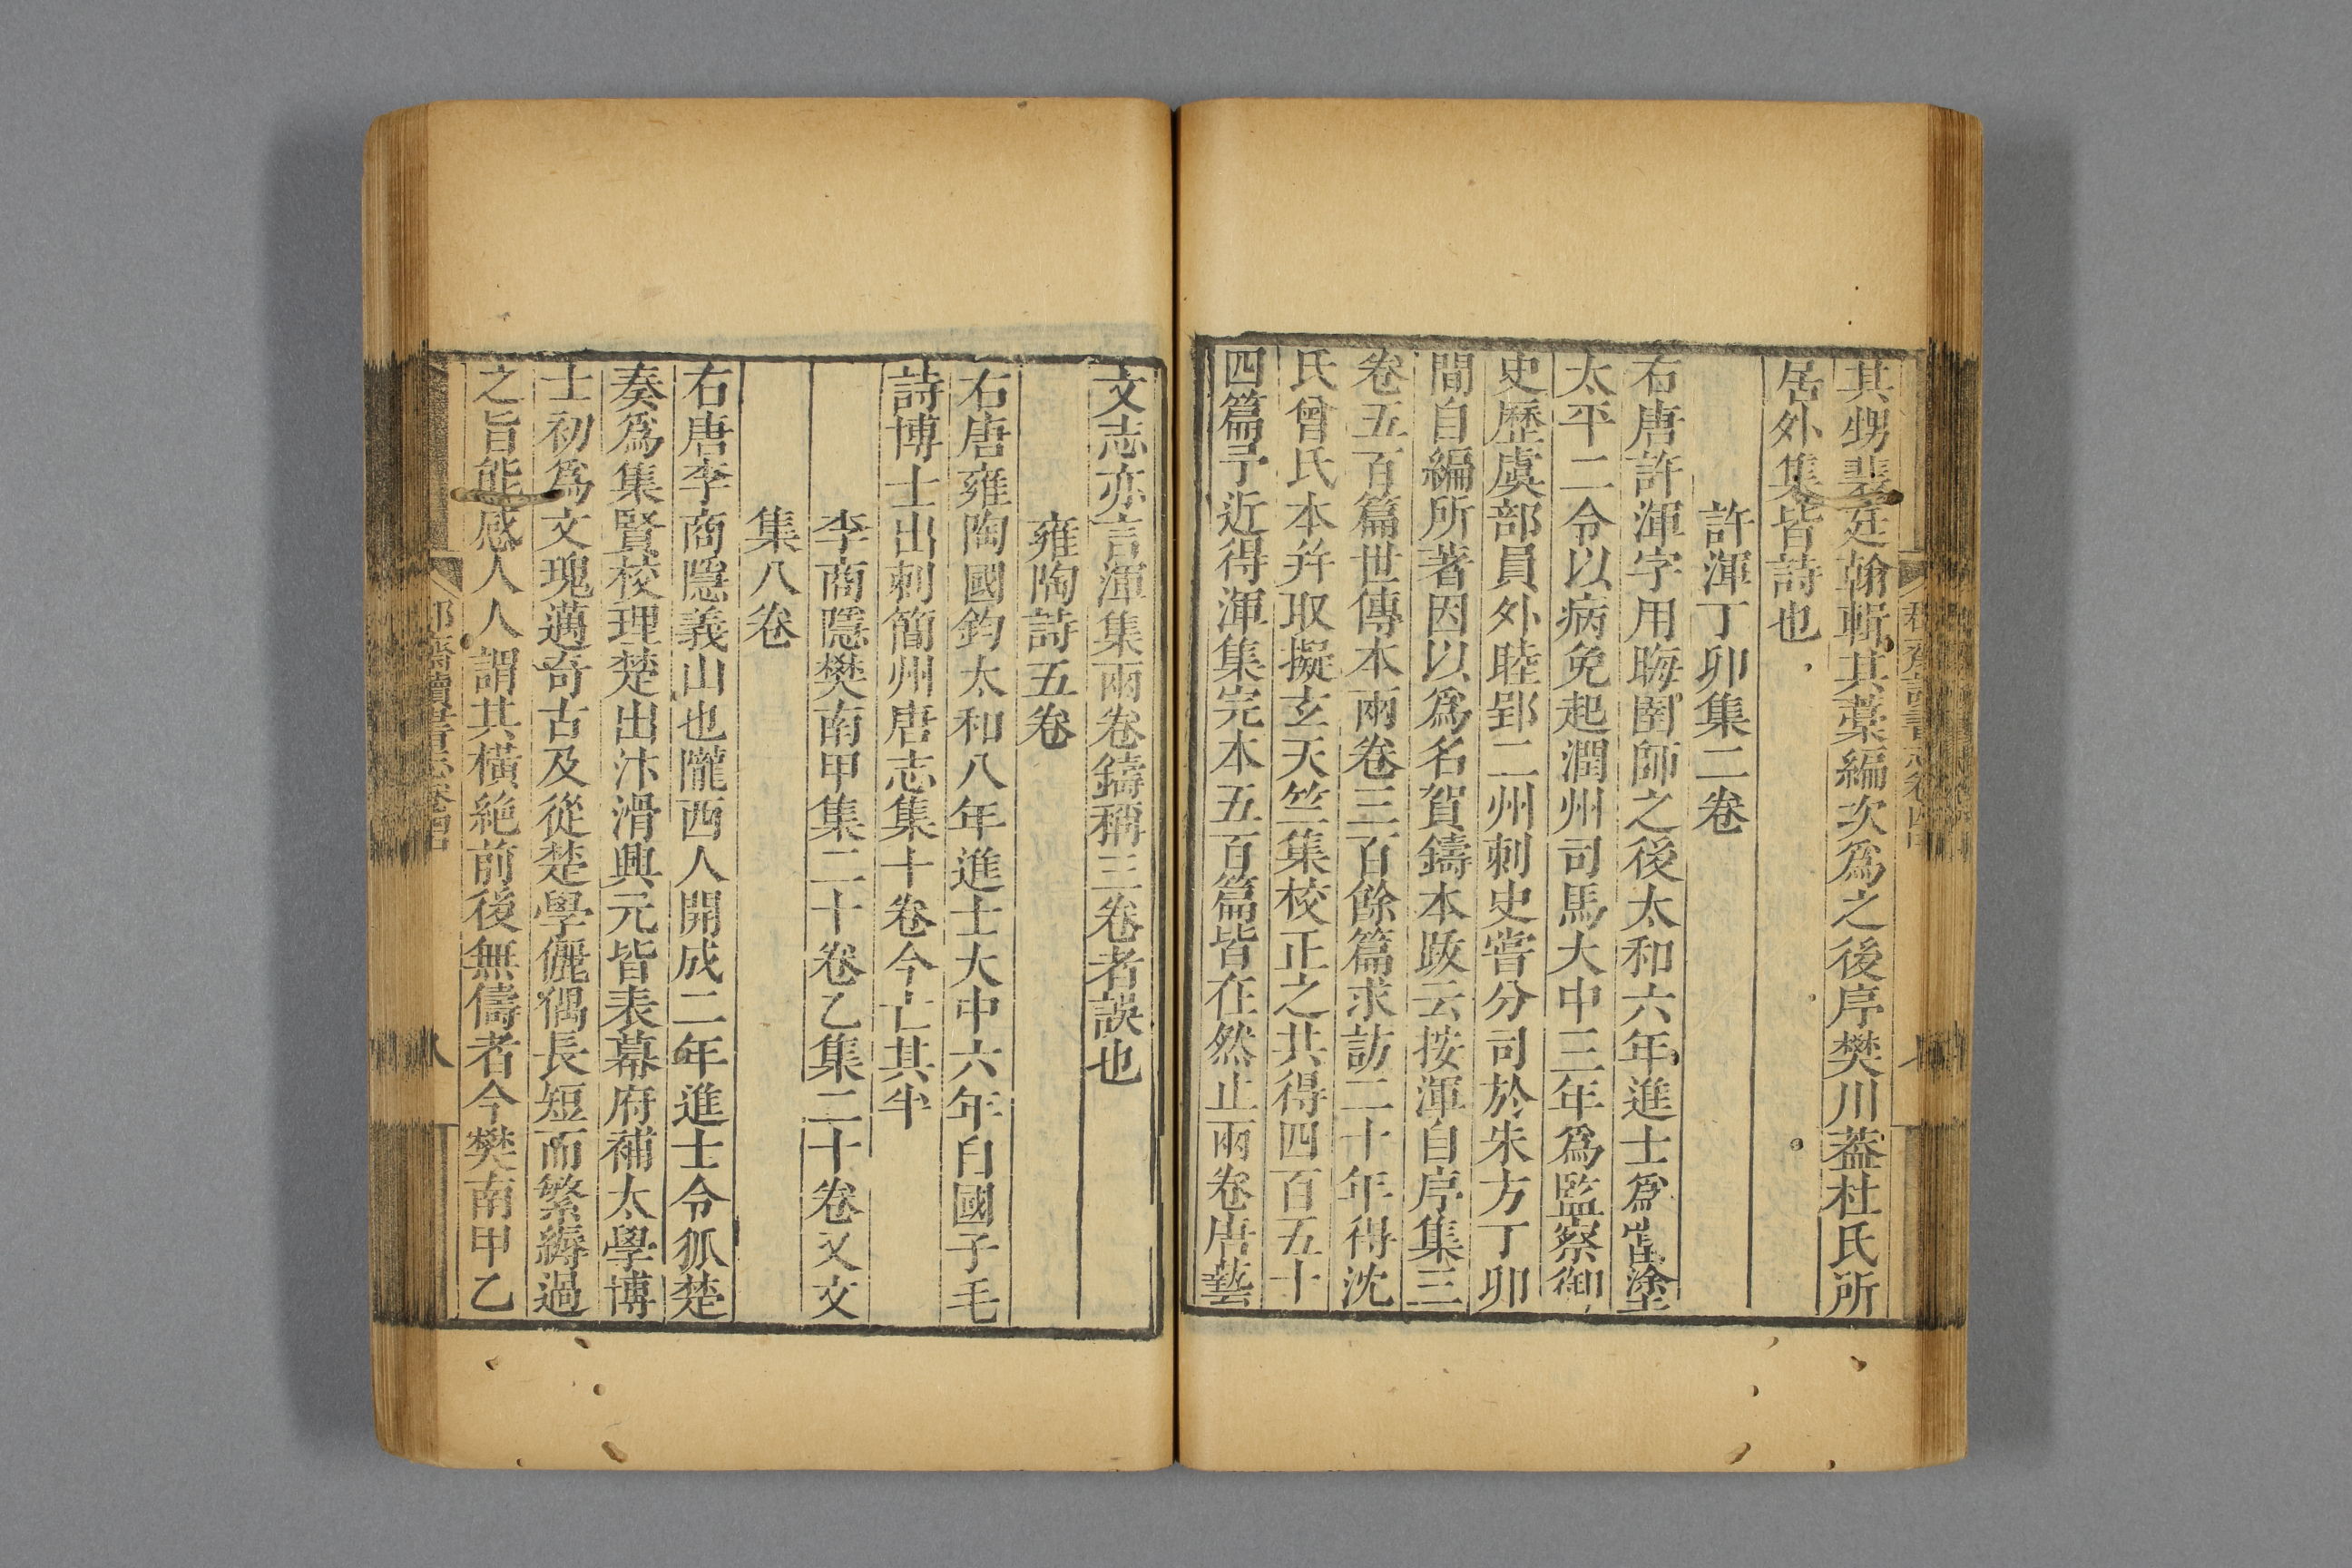 其甥裴延翰輯其藁編次爲之後序樊川葢杜氏所
居外集皆詩也
許渾丁卯集二卷
右唐許渾字用晦圉師之後太和六年進士爲當塗
太平二令以病免起潤州司馬大中三年爲監察御
史歷虞部員外睦郢二州刺史嘗分司於朱方丁卯
間自編所著因以爲名賀鑄本跋云按渾自序集三
卷五百篇世傳本兩卷三百餘篇求訪二十年得沈
氏曾氏本并取擬玄天竺集校正之共得四百五十
四篇予近得渾集完本五百篇皆在然止兩卷唐藝
文志亦言渾集兩卷鑄稱三卷者誤也
雍陶詩五卷
右唐雍陶國鈞太和八年進士大中六年自國子毛
詩博士出刺簡州唐志集十卷今亡其半
李商隱樊南甲集二十卷乙集二十卷又文
集八卷
右唐李商隱義山也隴西人開成二年進士令狐楚
奏爲集賢校理楚出汴滑興元皆表幕府補太學博
士初爲文瑰邁奇古及從楚學儷偶長短而繁縟過
之旨能感人人謂其橫絶前後無儔者今樊南甲乙
郡齋讀書志卷四
八